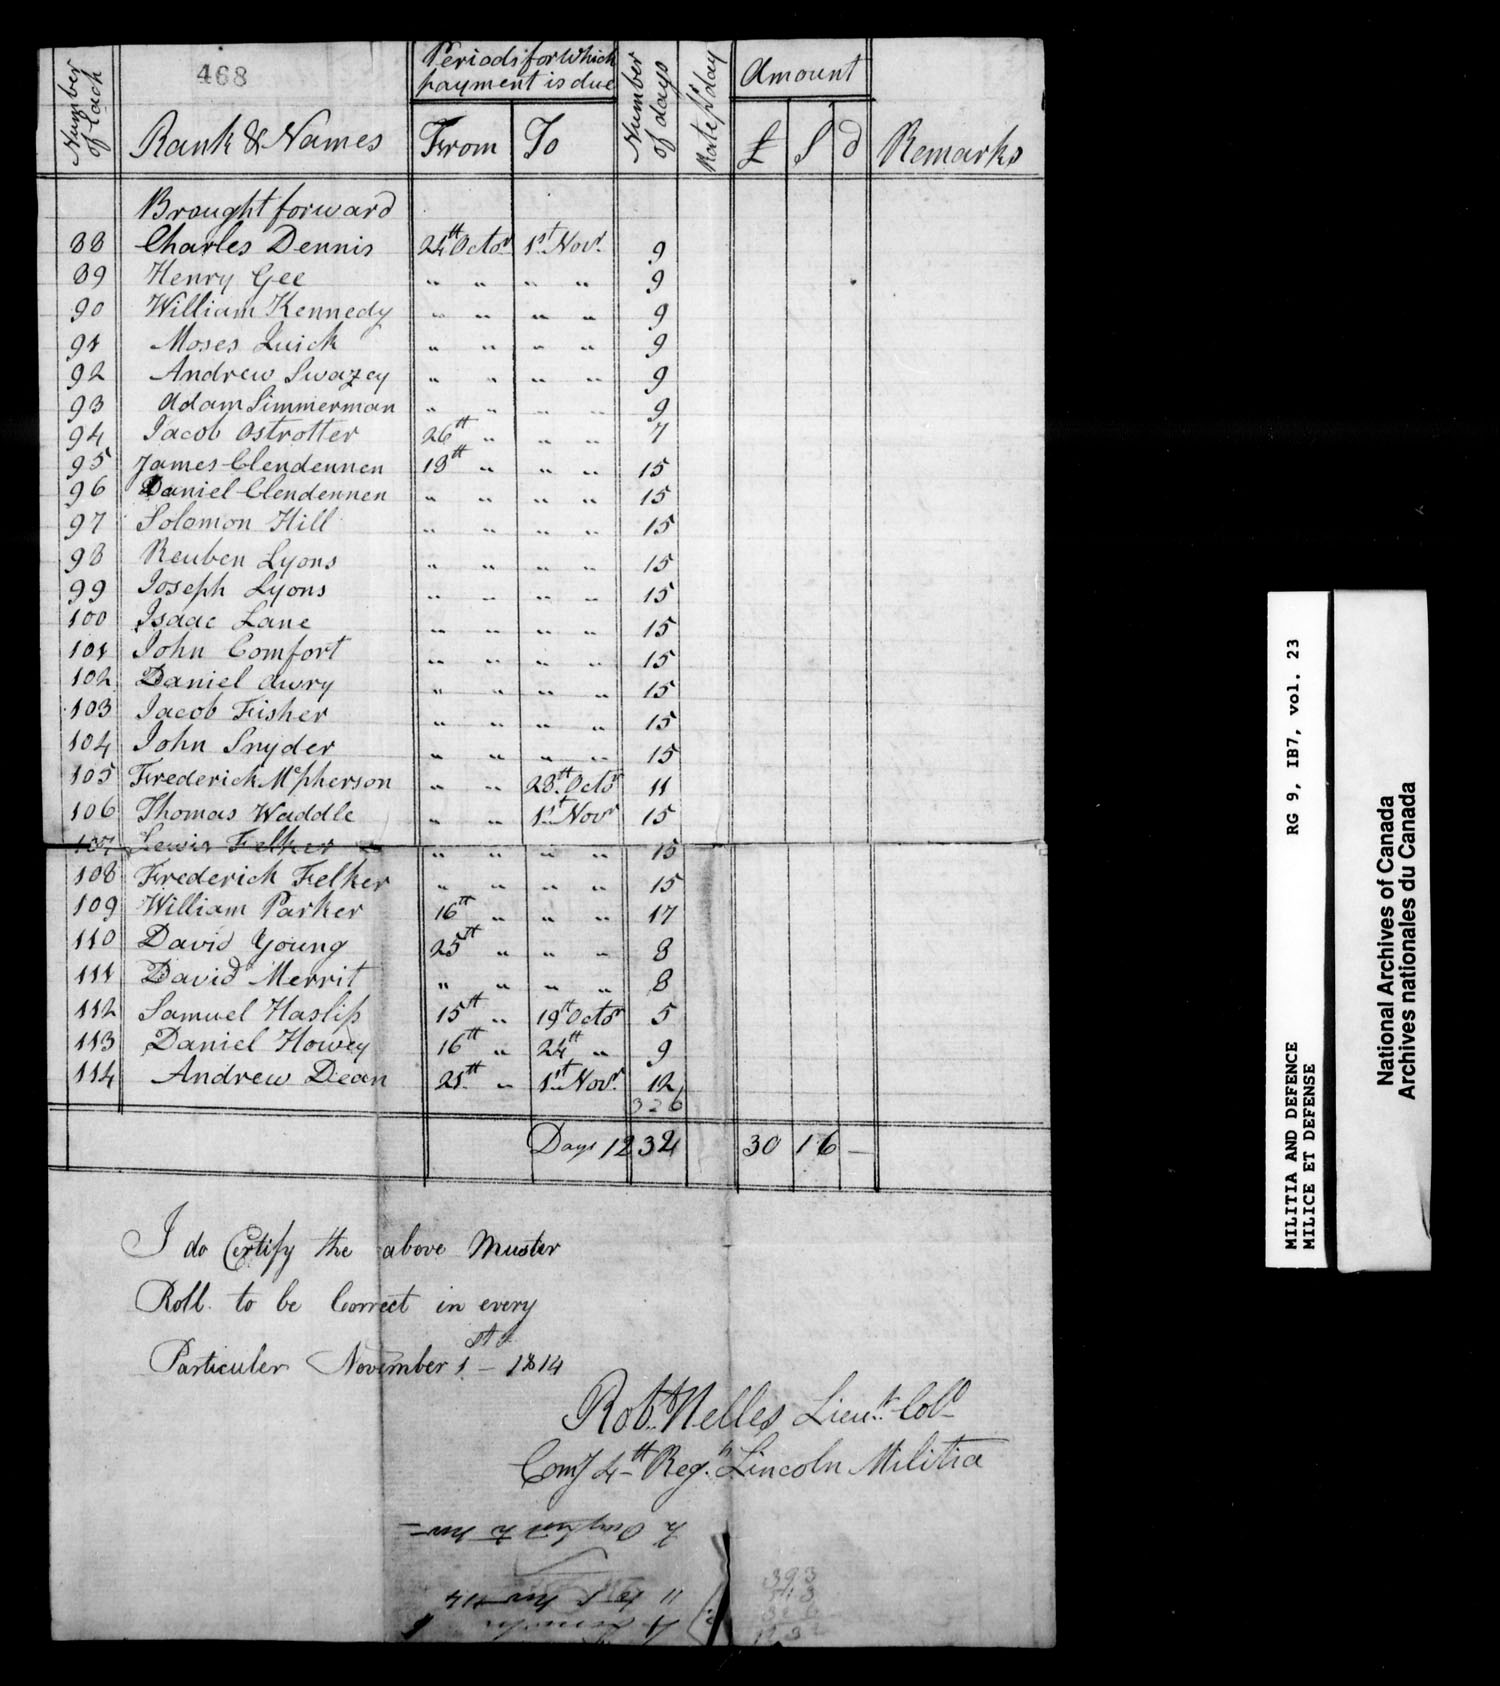 468
Number of Each | Rank & Names | Periods for Which payment is due | Number of days | Rate pr day | Amount | Remarks
From | To | £ | S | d
Brought forward
88 Charles Dennis 24th Octor 1st Novr 9
89 Henry Gee " " " " 9
90 William Kennedy " " " " 9
91 Moses Quick " " " " 9
92 Andrew Swazey " " " " 9
93 Adam Simmerman " " " " 9
94 Jacob Ostrotter 26th " " " 7
95 James Clendennen 18th " " " 15
96 Daniel Clendennen " " " " 15
97 Solomon Hill " " " " 15
98 Reuben Lyons " " " " 15
99 Joseph Lyons " " " " 15
100 Isaac Lane " " " " 15
101 John Comfort " " " " 15
102 Daniel Awry " " " " 15
103 Jacob Fisher " " " " 15
104 John Snyder " " " " 15
105 Frederick McPherson " " 28th Octor 11
106 Thomas Waddle " " 1st Novr 15
107 Lewis Felker " " " " 15
108 Frederick Felker " " " " 15
109 William Parker 16th " " " 17
110 David Young 25th " " " 8
111 David Merrit " " " " 8
112 Samuel Haslip 15th " 19th Octor 5
113 Daniel Howey 16th " 24th " 9
114 Andrew Dean 21st " 1st Novr 12
326
Days 1232 30 16 —
I do Certify the above Muster
Roll to be Correct in every
Particuler November 1st — 1814
Robt. Nelles Lieut. Coll
Comg 4th Regt Lincoln Militia
393
513
326
1232
MILITIA AND DEFENCE RG 9, IB7, vol. 23
MILICE ET DEFENSE
National Archives of Canada
Archives nationales du Canada